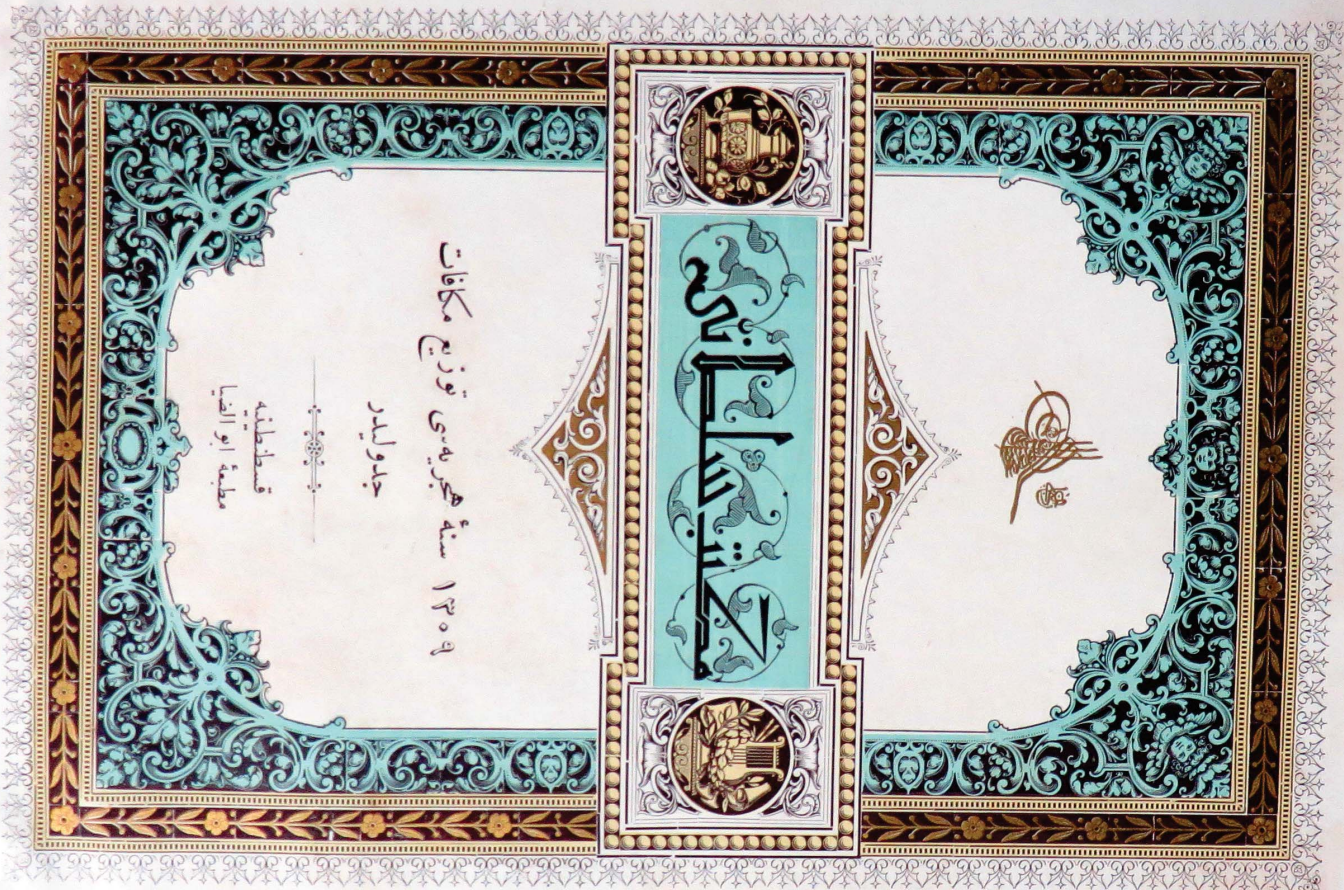 مكتب سلطانی
١٣٠٩ سنهٔ هجریه‌سی توزیع مكافات
جدولیدر
قسطنطنیه
مطبعهٔ ابوالضیا